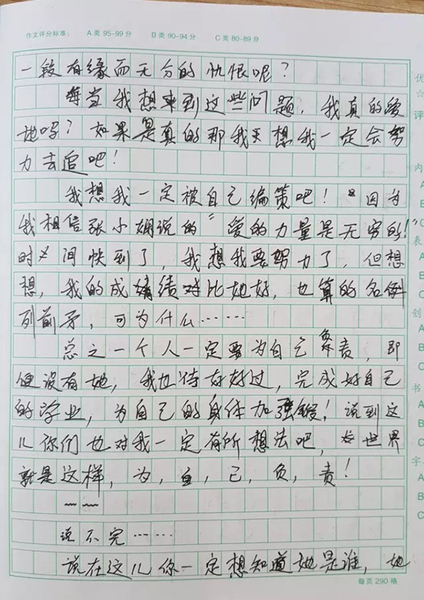 作文评分标准： A类 95-99分 B类 90-94分 C类 80-89分
一段有缘而无分的忧恨呢？
每当我想来到这些问题，我真的爱
她吗？如果是真的那我想我一定会努
力去追吧！
我想我一定被自己鞭策吧！因为
我相信张小娴说的“爱的力量是无穷的！”
时间快到了，我想我要努力了，但想
想，我的成绩对比她好，也算的名例
列前矛，可为什么……
总之一个人一定要为自己负责，即
便没有她，我也得好好过，完成好自己
的学业，为自己的身体加强锻！说到这
儿你们也对我一定有所想法吧，世界
就是这样，为，自，己，负，责！
说不完……
说在这儿你一定想知道她是谁，她
每页290格
优
☆
评
内
A
B
C
表
A
B
C
创
A
B
C
书
A
B
C
字
A
B
C